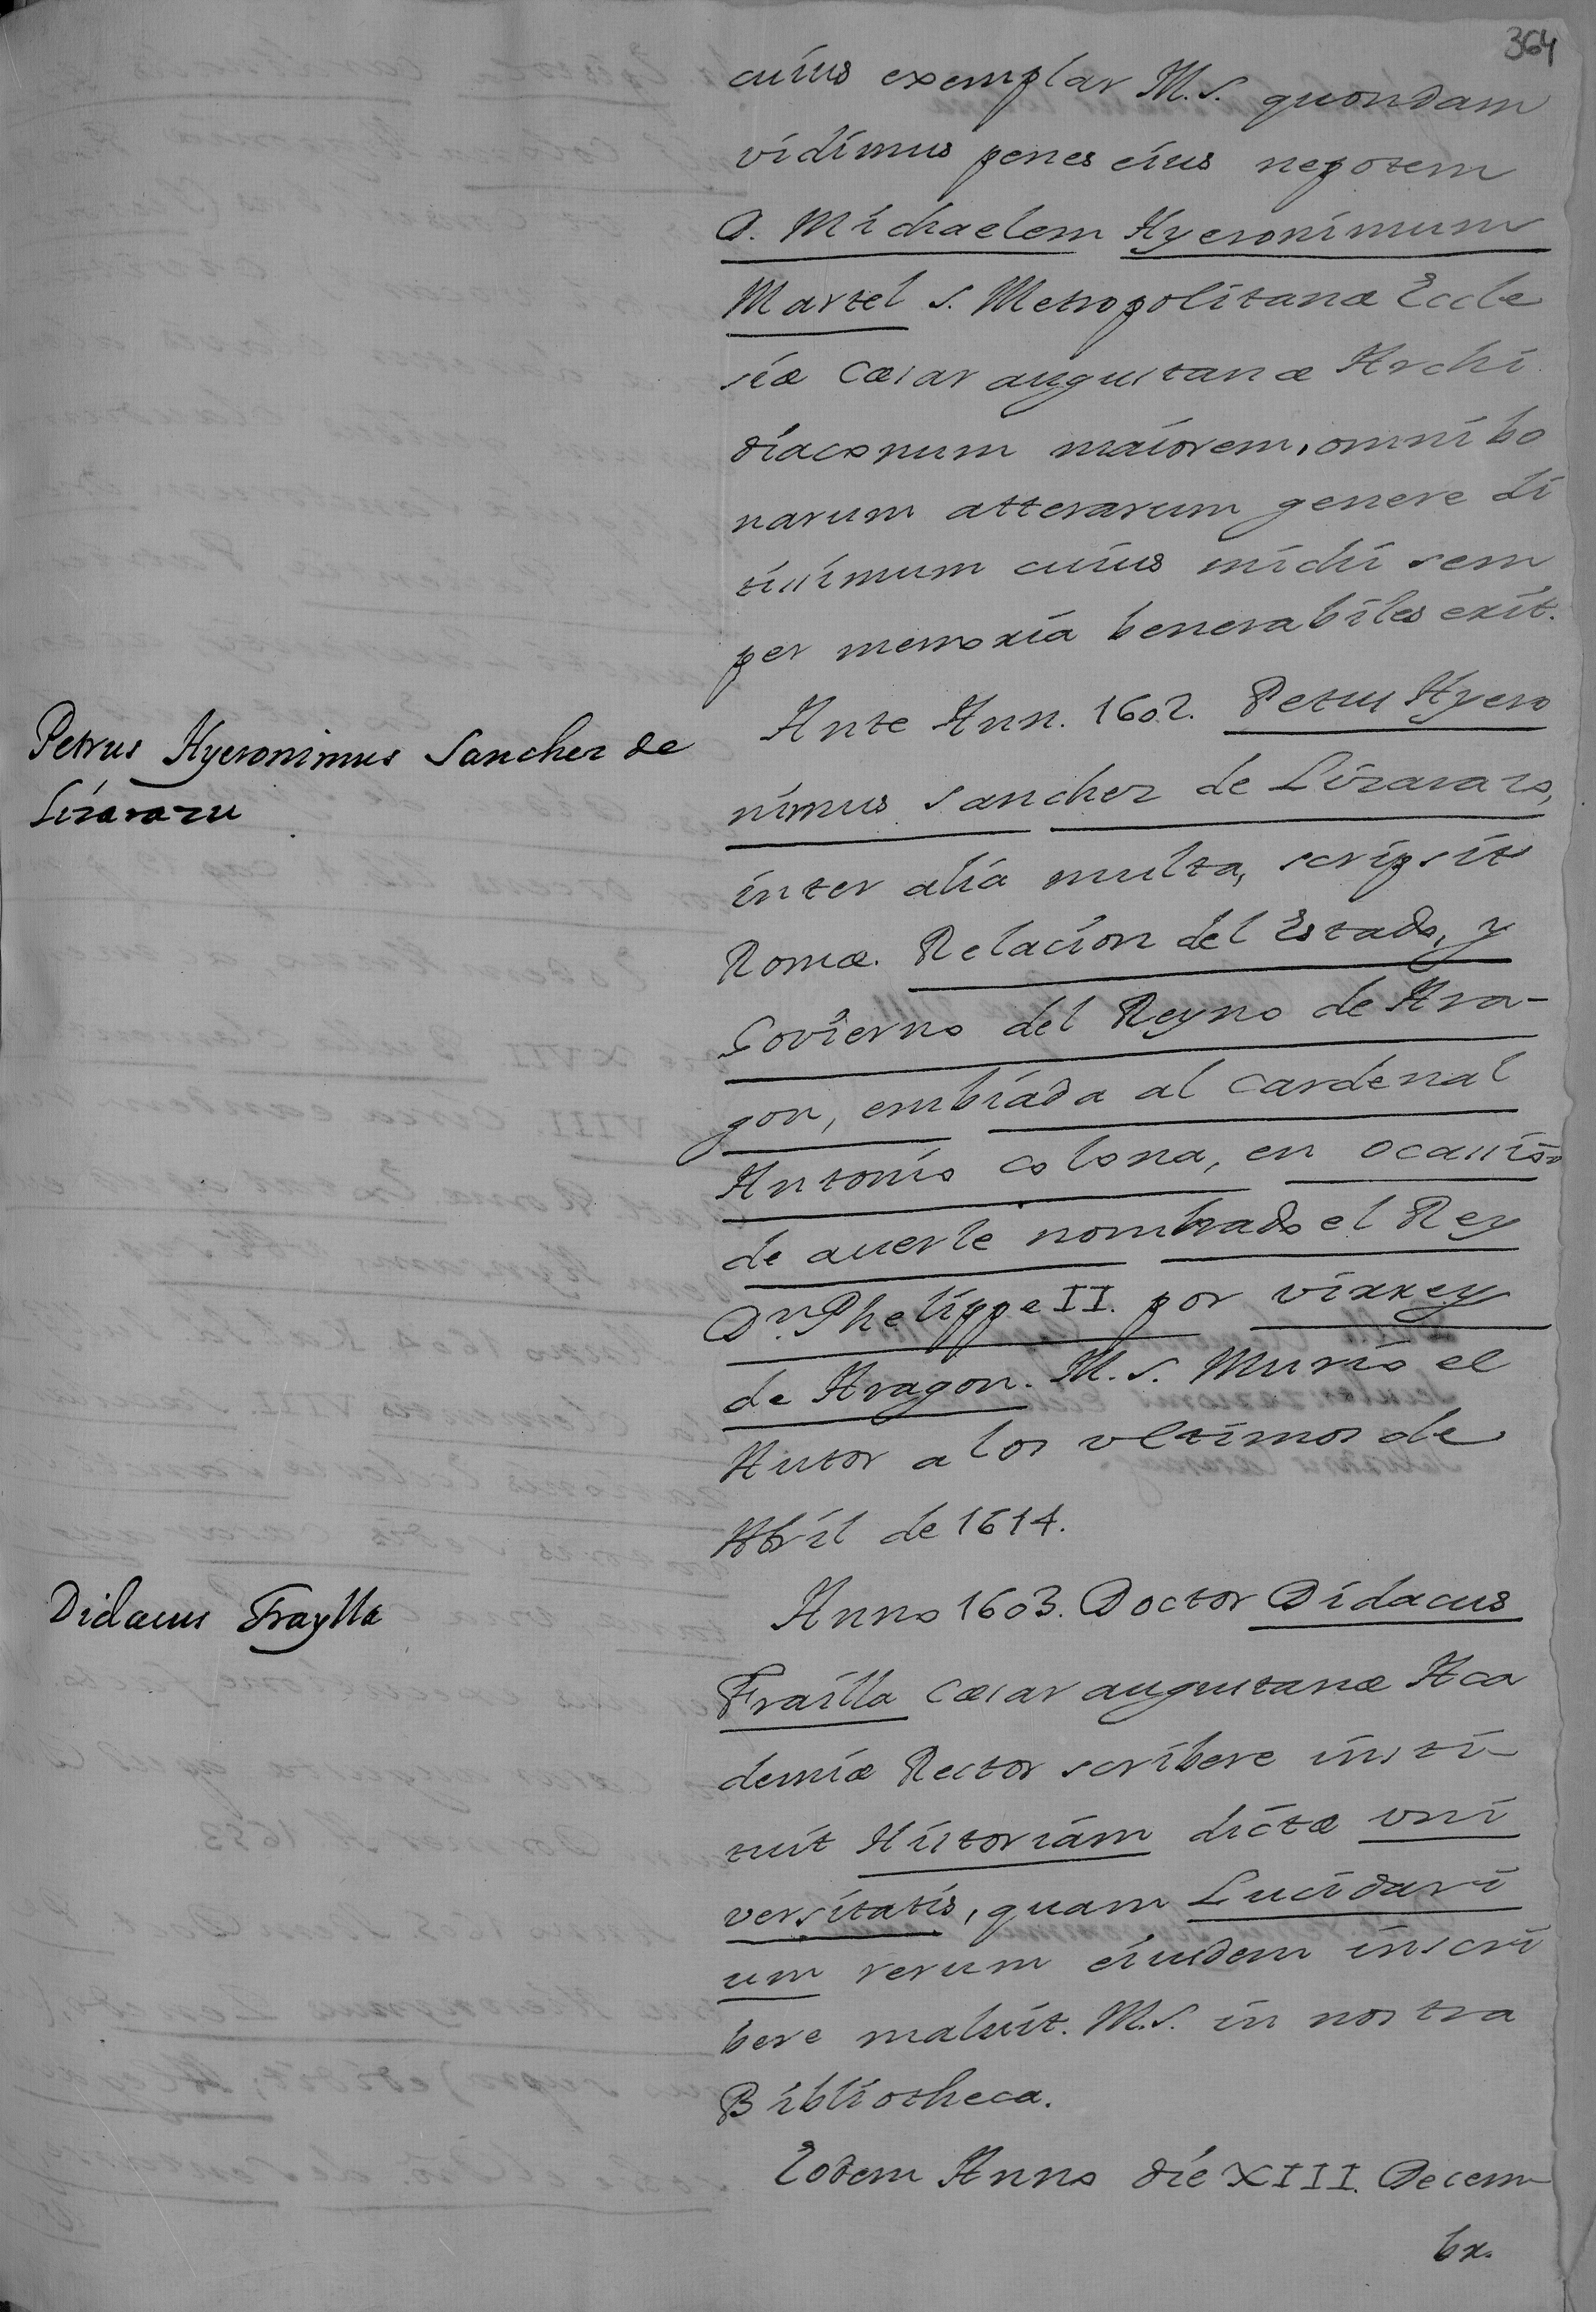 364
cuius exemplar M.S. quondam
vidimus penes eius nepotem
D. Michaelem Hyeronimum
Martel S. Metropolitanæ Eccle
siæ Cæsaraugustanæ Archi
diaconum maiorem, omni bo
narum atterarum genere di
tissimum cuius michi sem
per memoria benerabiles exit.
Petrus Hyeronimus Sanchez de
Lizarazu
Ante Ann. 1602. Petrus Hyero
nimus Sanchez de Lizarazo,
inter alia multa, scripsit
Romæ. Relacion del Estado, y
Govierno del Reyno de Ara-
gon, embiada al Cardenal
Antonio Colona, en ocassion
de averle nombrado el Rey
Dn. Phelippe II. por virrey
de Aragon. M.S. Murio el
Autor a los vltimos de
Abril de 1614.
Didacus Fraylla
Anno 1603. Doctor Didacus
Frailla Cæsaraugustanæ Aca
demiæ Rector scribere insti-
tuit Historiam dictæ vni
versitatis, quam Lucidari
um rerum eiusdem inscri
bere maluit. M.S. in nostra
Bibliotheca.
Eodem Anno die XIII. Decem
br.